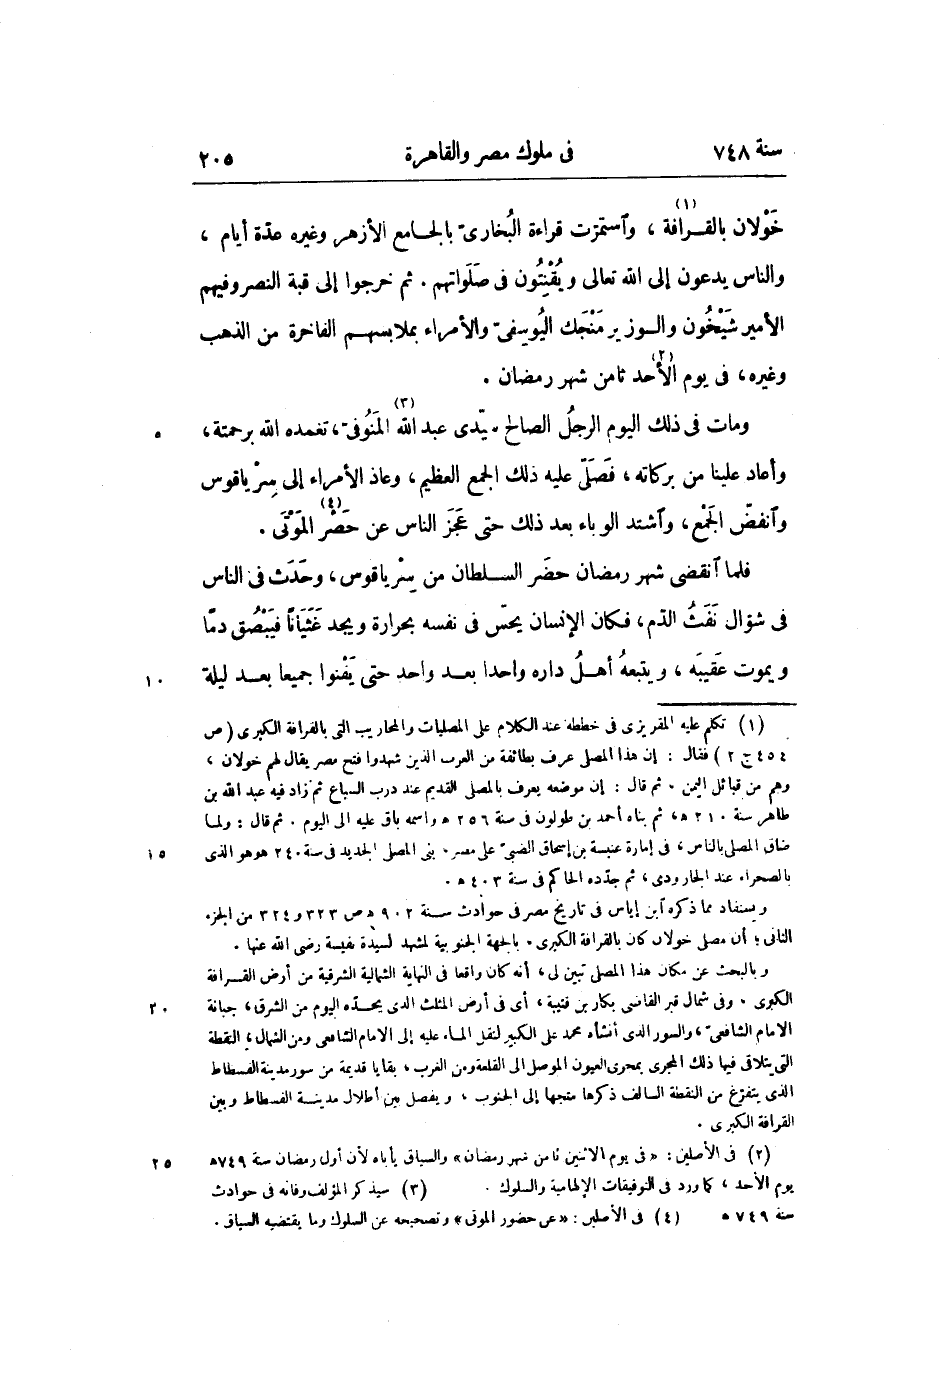 سنة ٧٤٨ فى ملوك مصر والقاهرة ٢٠٥
خَوْلان بالقرافة (١) ، وٱستمرّت قراءة البُخارى بالجامع الأزهر وغيره عدّة أيام ،
والناس يدعون إلى الله تعالى ويُقْنُتُون فى صَلَواتهم . ثم خرجوا إلى قبة النصر وفيهم
الأمير شَيْخُون والوزير مَنْجَك اليُوسفىّ والأمراء بملابسهم الفاخرة من الذهب
وغيره، فى يوم الأحد (٢) ثامن شهر رمضان .
ومات فى ذلك اليوم الرجلُ الصالح سيّدى عبد الله المَنُوفىّ (٣)، تغمده الله برحمته، ٥
وأعاد علينا من بركاته ، فَصَلَّى عليه ذلك الجمع العظيم، وعاد الأمراء إلى سِرْياقوس
وٱنفضّ الجَمْع، وٱشتد الوباء بعد ذلك حتى عَجَز الناس عن حَصْر (٤) المَوْتَى .
فلما ٱنقضى شهر رمضان حضَر السلطان من سِرْياقوس، وحَدَث فى الناس
فى شوّال نَفَثُ الدّم، فكان الإنسان يحسّ فى نفسه بحرارة ويجد غَثَيَانًا فيَبْصُق دمًا
ويموت عَقِيبَه ، ويتبعهُ أهلُ داره واحدا بعد واحد حتى يَفْنوا جميعا بعد ليلة ١٠
(١) تكلم عليه المقريزى فى خططه عند الكلام على المصليات والمحاريب التى بالقرافة الكبرى ( ص
٤٥٤ ج ٢ ) فقال : إن هذا المصلى عرف بطائفة من العرب الذين شهدوا فتح مصر يقال لهم خولان ،
وهم من قبائل اليمن . ثم قال : إن موضعه يعرف بالمصلى القديم عند درب السباع ثم زاد فيه عبد الله بن
طاهر سنة ٢١٠ ه، ثم بناه أحمد بن طولون فى سنة ٢٥٦ ه واسمه باق عليه الى اليوم . ثم قال : ولما
ضاق المصلى بالناس، فى إمارة عنبسة بن إسحاق الضبىّ على مصر، بنى المصلى الجديد فى سنة ٢٤٠ ه وهو الذى ١٥
بالصحراء عند الجارودى، ثم جدّده الحاكم فى سنة ٤٠٣ ه .
ويستفاد مما ذكره ٱبن إياس فى تاريخ مصر فى حوادث سنة ٩٠٢ ه ص ٣٢٣ و ٣٢٤ من الجزء
الثانى؛ أن مصلى خولان كان بالقرافة الكبرى، بالجهة الجنوبية لمشهد السيدة نفيسة رضى الله عنها .
وبالبحث عن مكان هذا المصلى تبين لى، أنه كان واقعا فى النهاية الشمالية الشرقية من أرض القرافة
الكبرى . وفى شمال قبر القاضى بكار بن قتيبة ، أى فى أرض المثلث الذى يحدّه اليوم من الشرق، جبانة ٢٠
الامام الشافعىّ، والسور الذى أنشأه محمد على الكبير لنقل الماء عليه إلى الامام الشافعى ومن الشمال، النقطة
التى يتلاقى فيها ذلك المجرى بمجرى العيون الموصل الى القلعة ومن الغرب ، بقايا قديمة من سور مدينة الفسطاط
الذى يتفرّع من النقطة السالف ذكرها متجها إلى الجنوب ، ويفصل بين أطلال مدينة الفسطاط وبين
القرافة الكبرى .
(٢) فى الأصلين : «فى يوم الاثنين ثامن شهر رمضان» والسياق يأباه لأن أول رمضان سنة ٧٤٩ه ٢٥
يوم الأحد ، كما ورد فى التوفيقات الإلهامية والسلوك . (٣) سيذكر المؤلف وفاته فى حوادث
سنة ٧٤٩ ه (٤) فى الأصلين : «عن حضور الموتى» وتصحيحه عن السلوك وما يقتضيه السياق .